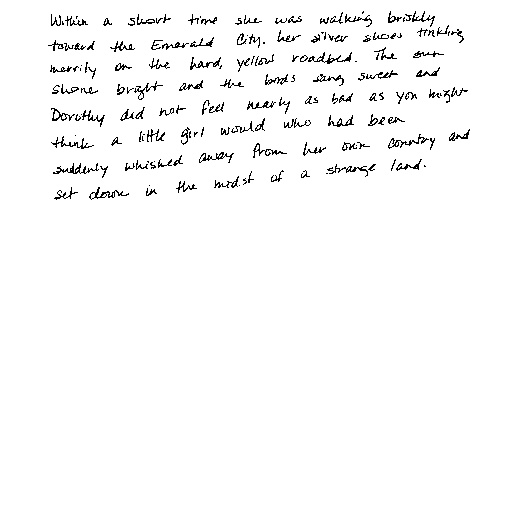 Within a short time she was walking briskly
toward the Emerald City. her silver shoes tinkling
merrily on the hard, yellow roadbed. The sun
shone bright and the birds sang sweet and
Dorothy did not feel nearly as bad as you might
think a little girl would who had been
suddenly whisked away from her own country and
set down in the midst of a strange land.